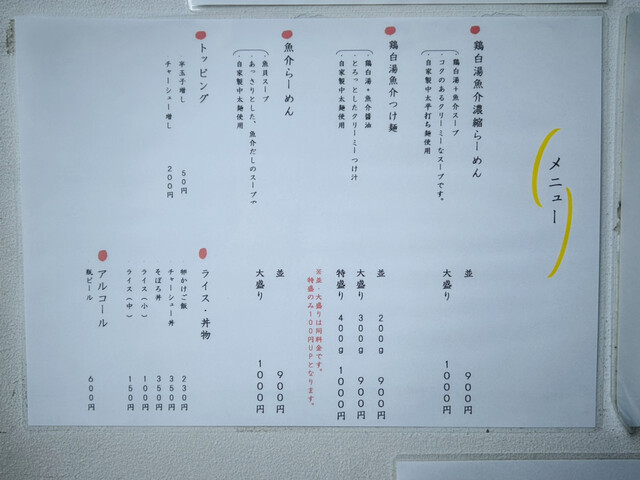 メニュー
鶏白湯魚介濃縮らーめん
鶏白湯+魚介スープ
コクのあるクリーミーなスープです。
自家製中太平打ち麺使用
並 900円
大盛り 1000円
鶏白湯魚介つけ麺
鶏白湯+魚介醤油
とろっとしたクリーミーつけ汁
自家製中太麺使用
並 200g 900円
大盛り 300g 900円
特盛り 400g 1000円
※並・大盛りは同料金です。
特盛のみ100円UPとなります。
魚介らーめん
魚貝スープ
あっさりとした、魚介だしのスープで
自家製中太麺使用
並 900円
大盛り 1000円
トッピング
半玉子増し 50円
チャーシュー増し 200円
ライス・丼物
卵かけご飯 230円
チャーシュー丼 350円
そぼろ丼 350円
ライス(小) 100円
ライス(中) 150円
アルコール
瓶ビール 600円